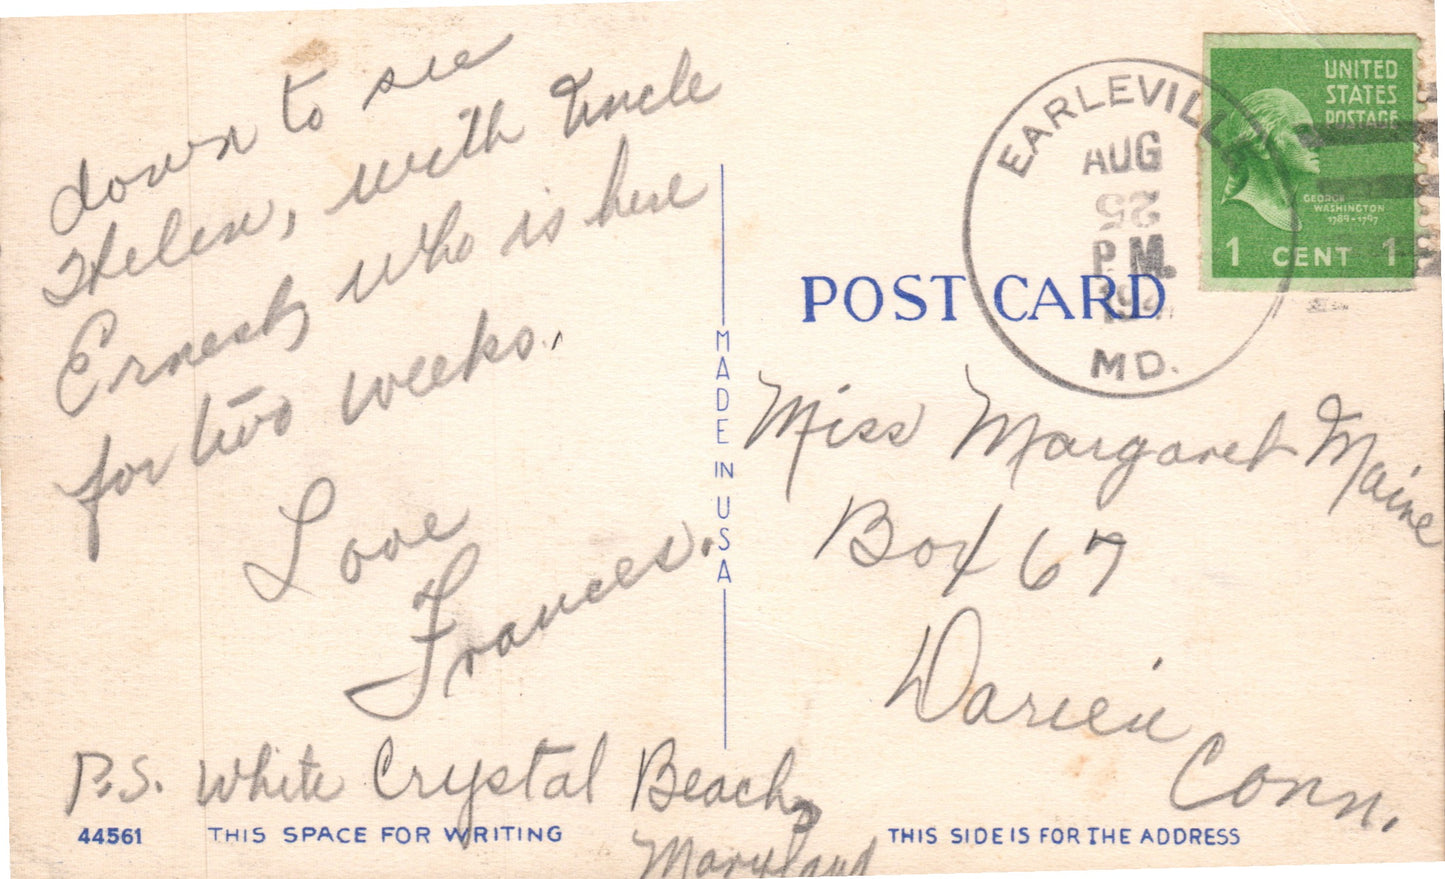 down to see
Helen, with Uncle
Ernest, who is here
for two weeks.
Love
Frances.
P.S. White Crystal Beach,
Maryland
44561 THIS SPACE FOR WRITING
MADE IN USA
UNITED
STATES
POSTAGE
GEORGE
WASHINGTON
1789-1797
1 CENT 1
EARLEVILLE
AUG
25
P.M.
MD.
POST CARD
Miss Margaret Maine
Box 67
Darien
Conn.
THIS SIDE IS FOR THE ADDRESS